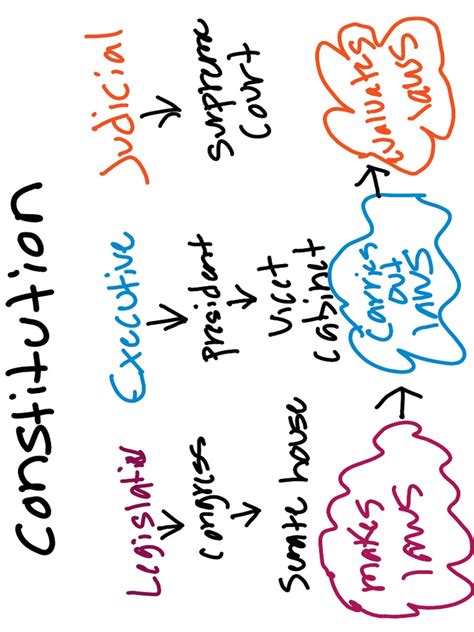 Constitution
Legislative
Congress
Senate house
makes
laws
Executive
president
Vice+
Cabinet
Carries
out
laws
Judicial
supreme
court
Evaluates
laws